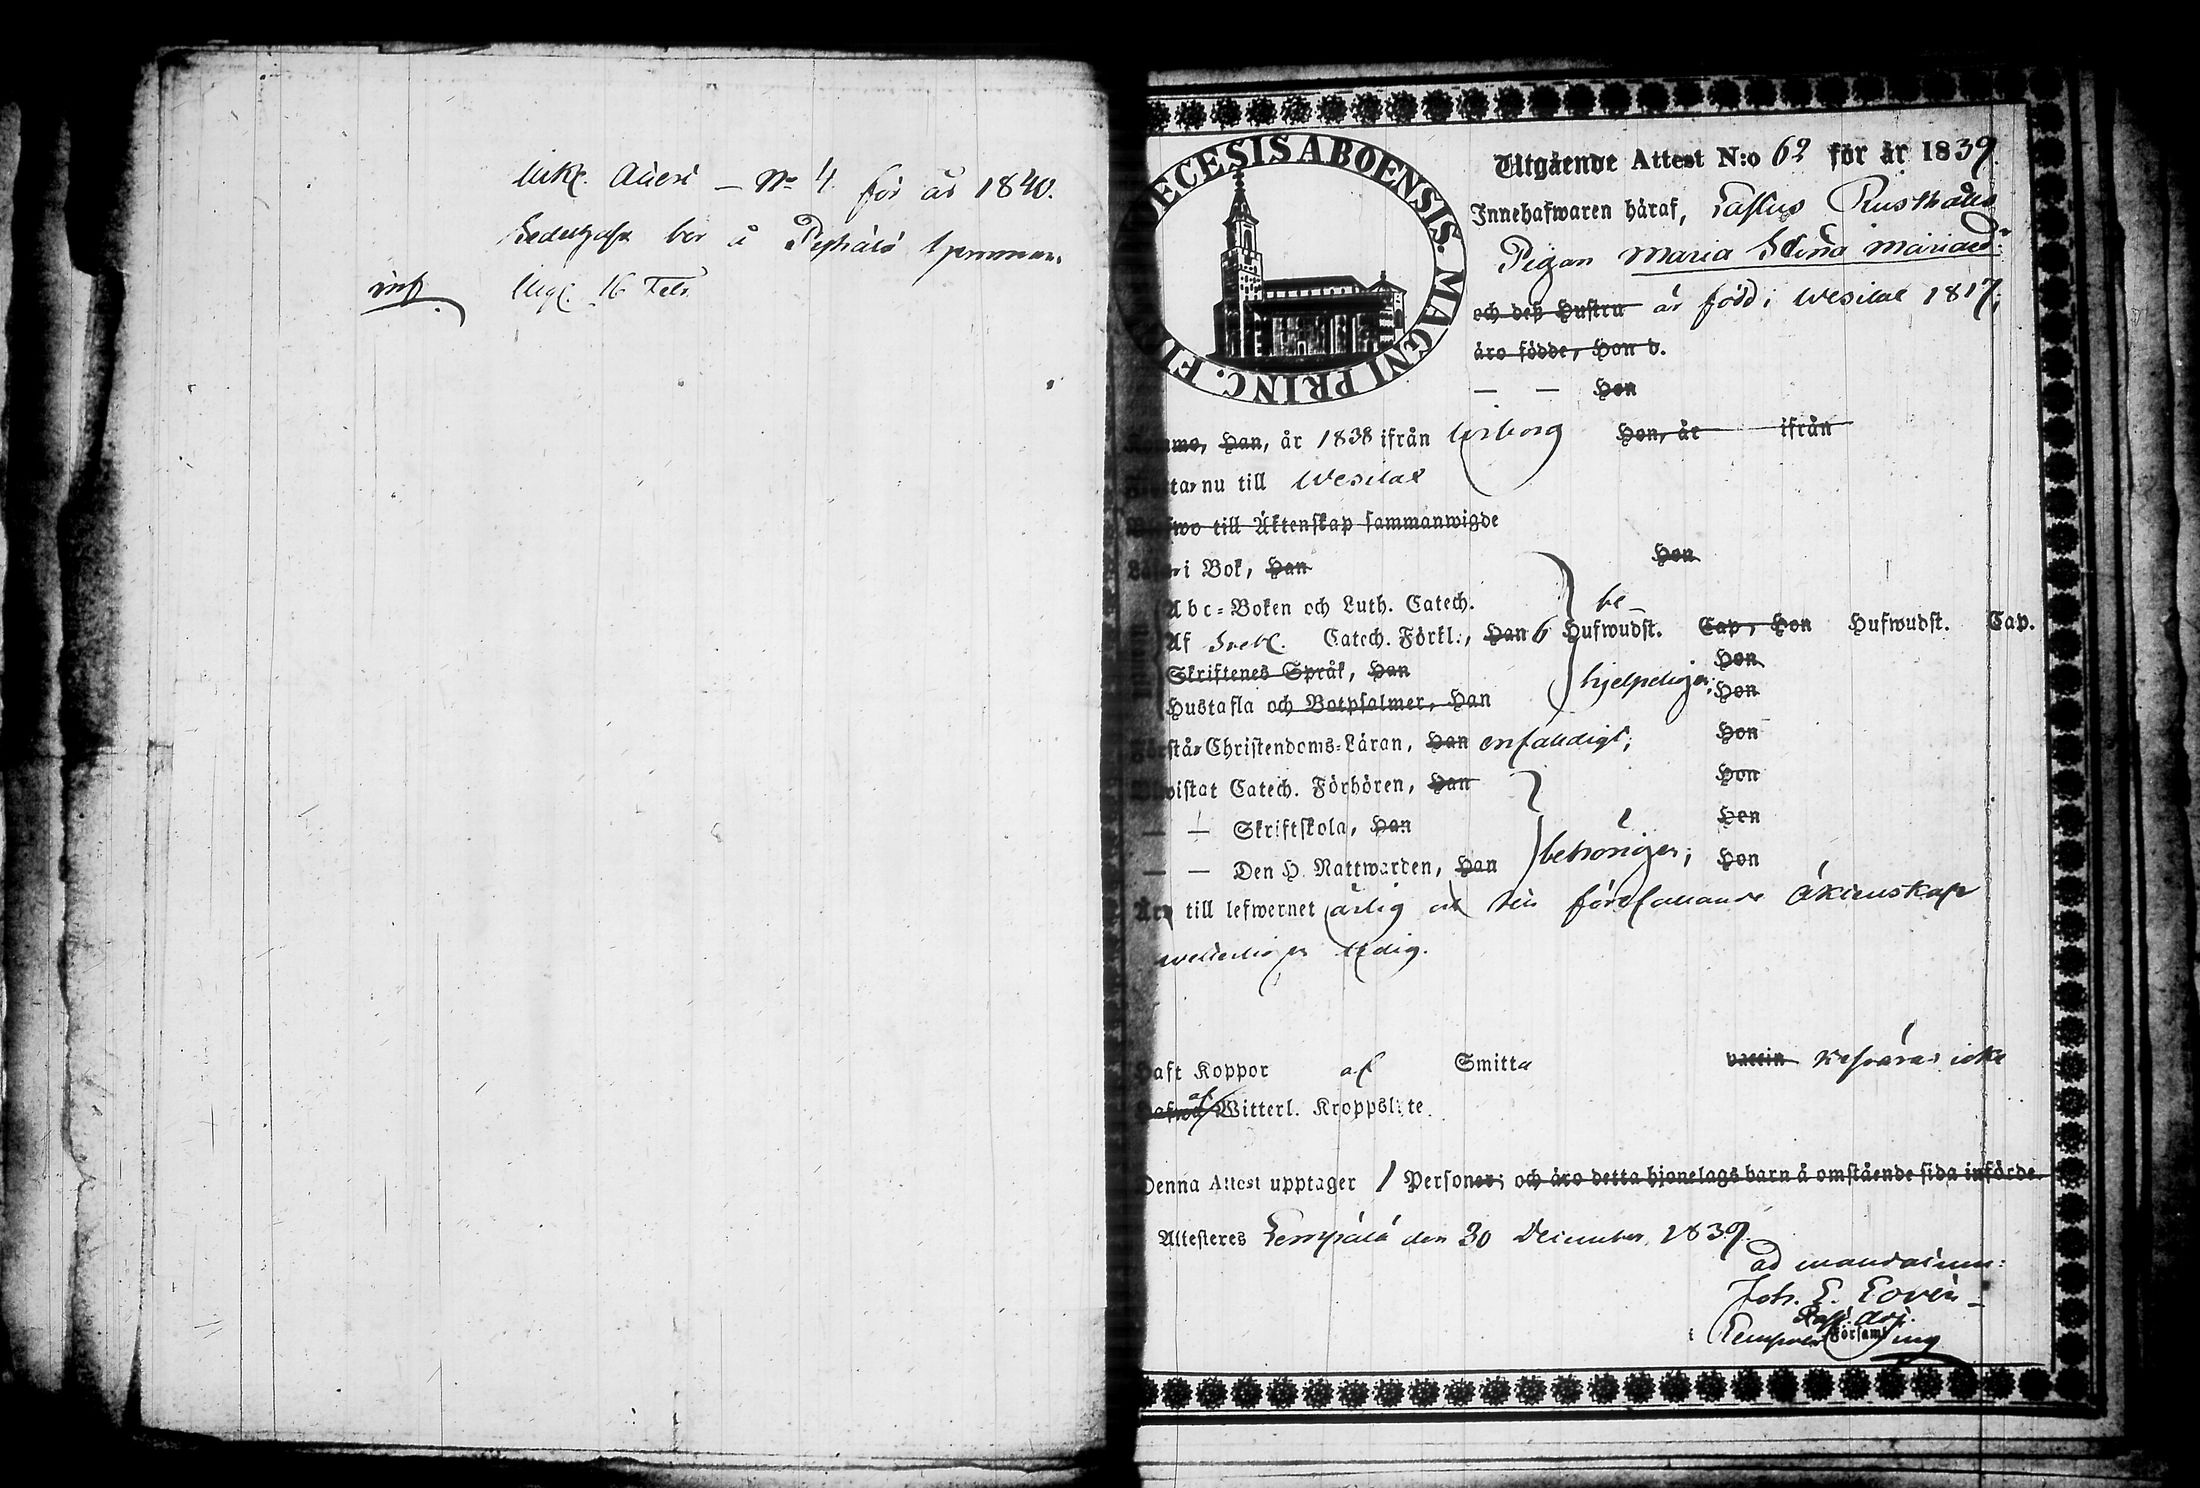 Inkc. Attest – No 4. för år 1840.
bor å
inf
16 Febr.
DIECESIS ABOENSIS. MAGNI PRINC. FI
Utgående Attest N:o 62 för år 1839.
Innehafwaren håraf, Rusthålls
Pigan Maria Stina Mariaed:
och deß Hustru är född i Wesilax 1817;
äro födde, Hon d.
— — Hon
Komme, Han, år 1838 ifrån Wiborg Hon, år ifrån
Flyttar nu till Wesilax
Blefwo till Äktenskap sammanwigde
Läser i Bok, Han Hon
Abc-Boken och Luth. Catech. be-
Af Sveb. Catech. Förkl., Han 6 Hufwudst. Cap, Hon Hufwudst. Cap.
Skriftenes Språk, Han Hon
Hustafla och Botpsalmer, Han hjelpeligen; Hon
Förstår Christendoms-Läran, Han enfaldigt; Hon
Bivistat Catech. Förhören, Han Hon
— — Skriftskola, Han Hon
— — Den H. Nattwarden, Han behörigen; Hon
Äro till lefwernet ärlig och till förefallande äktenskap
ledig.
Haft Koppor af Smitta vaccin
Hafwa af Witterl. Kroppslyte
Denna Attest upptager 1 Personer; och äro detta hjonelags barn å omstående sida införde.
Attesteres Lempälä den 30 December 1839.
ad mandatum:
Joh. E. Lovén
Past. Adj.
i Lempälä Församling